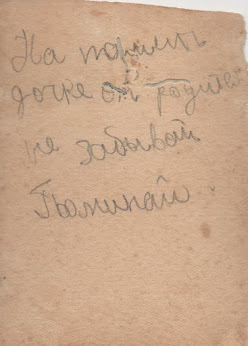 На память
дочке от родителей
не забывай
Поминай